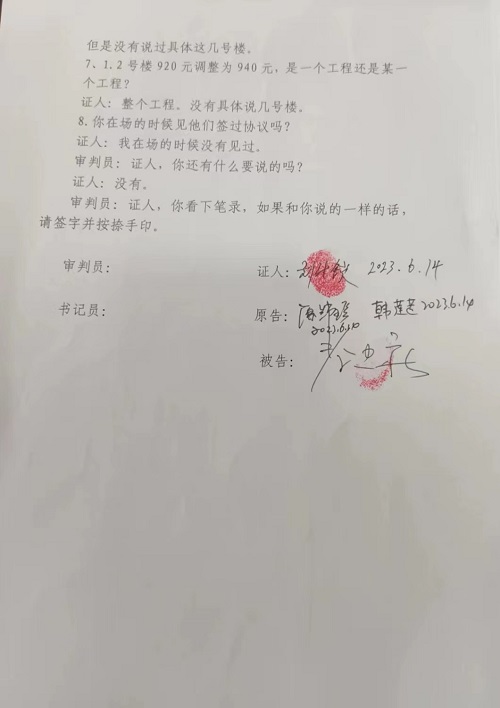 但是没有说过具体这几号楼。
7、1.2号楼920元调整为940元，是一个工程还是某一
个工程？
证人：整个工程。没有具体说几号楼。
8.你在场的时候见他们签过协议吗？
证人：我在场的时候没有见过。
审判员：证人，你还有什么要说的吗？
证人：没有。
审判员：证人，你看下笔录，如果和你说的一样的话，
请签字并按捺手印。
审判员： 证人： 2023.6.14
书记员： 原告： 2023.6.14
被告：